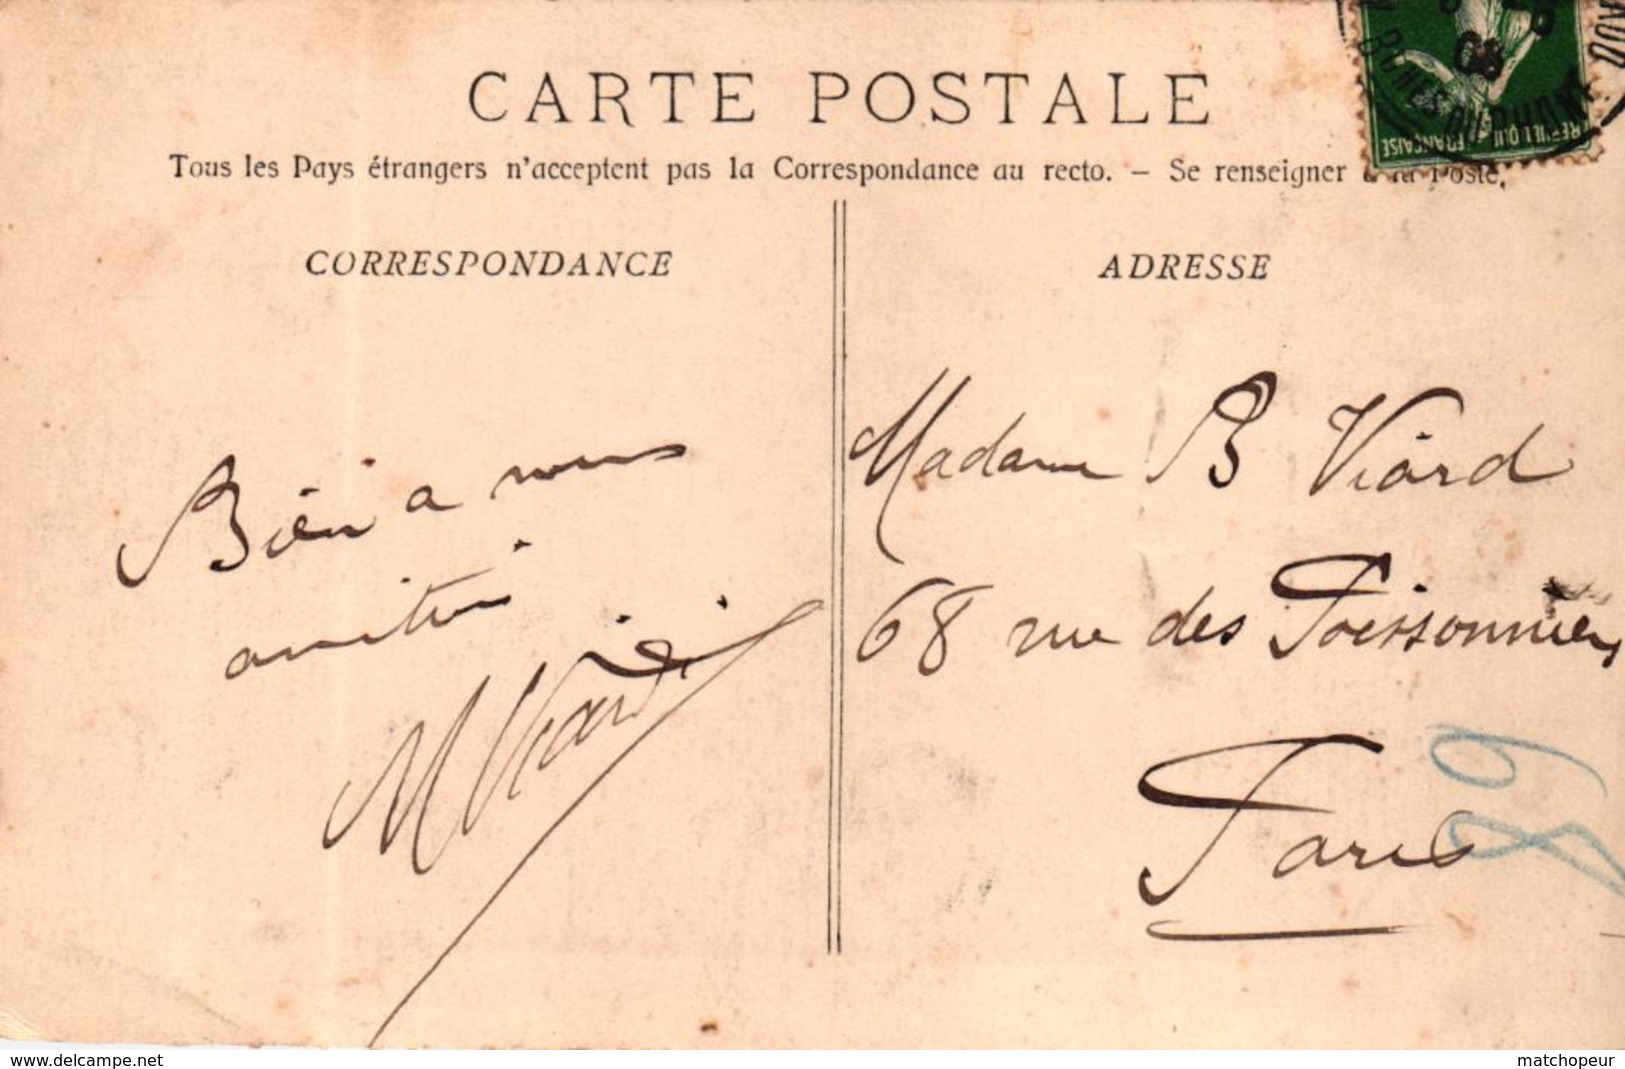 CARTE POSTALE
Tous les Pays étrangers n'acceptent pas la Correspondance au recto. — Se renseigner à la Poste.
CORRESPONDANCE
ADRESSE
Bien a vous
M Viard
Madame B Viard
68 rue des Poissonniers
Paris
REPUBLIQUE FRANÇAISE
08
BCHES DU RHONE
www.delcampe.net
matchopeur